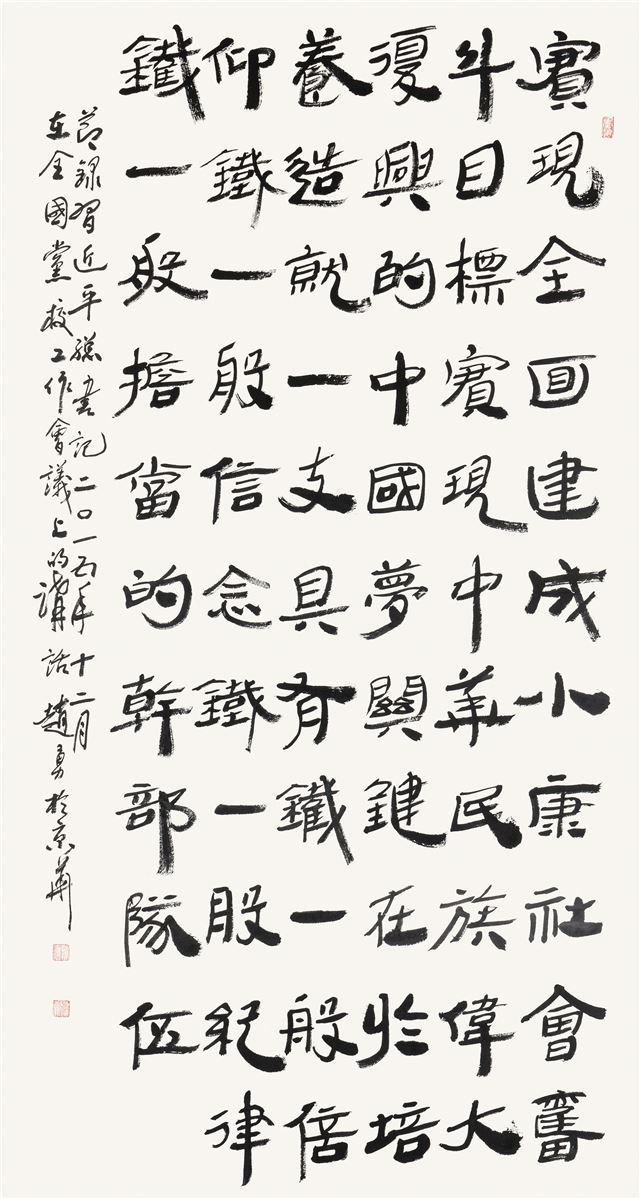 實現全面建成小康社會奮
斗目標實現中華民族偉大
復興的中國夢關鍵在於培
養造就一支具有鐵一般信
仰鐵一般信念鐵一般紀律
鐵一般擔當的幹部隊伍
節錄習近平總書記二〇一五年十二月
在全國黨校工作會議上的講話 趙勇於京華